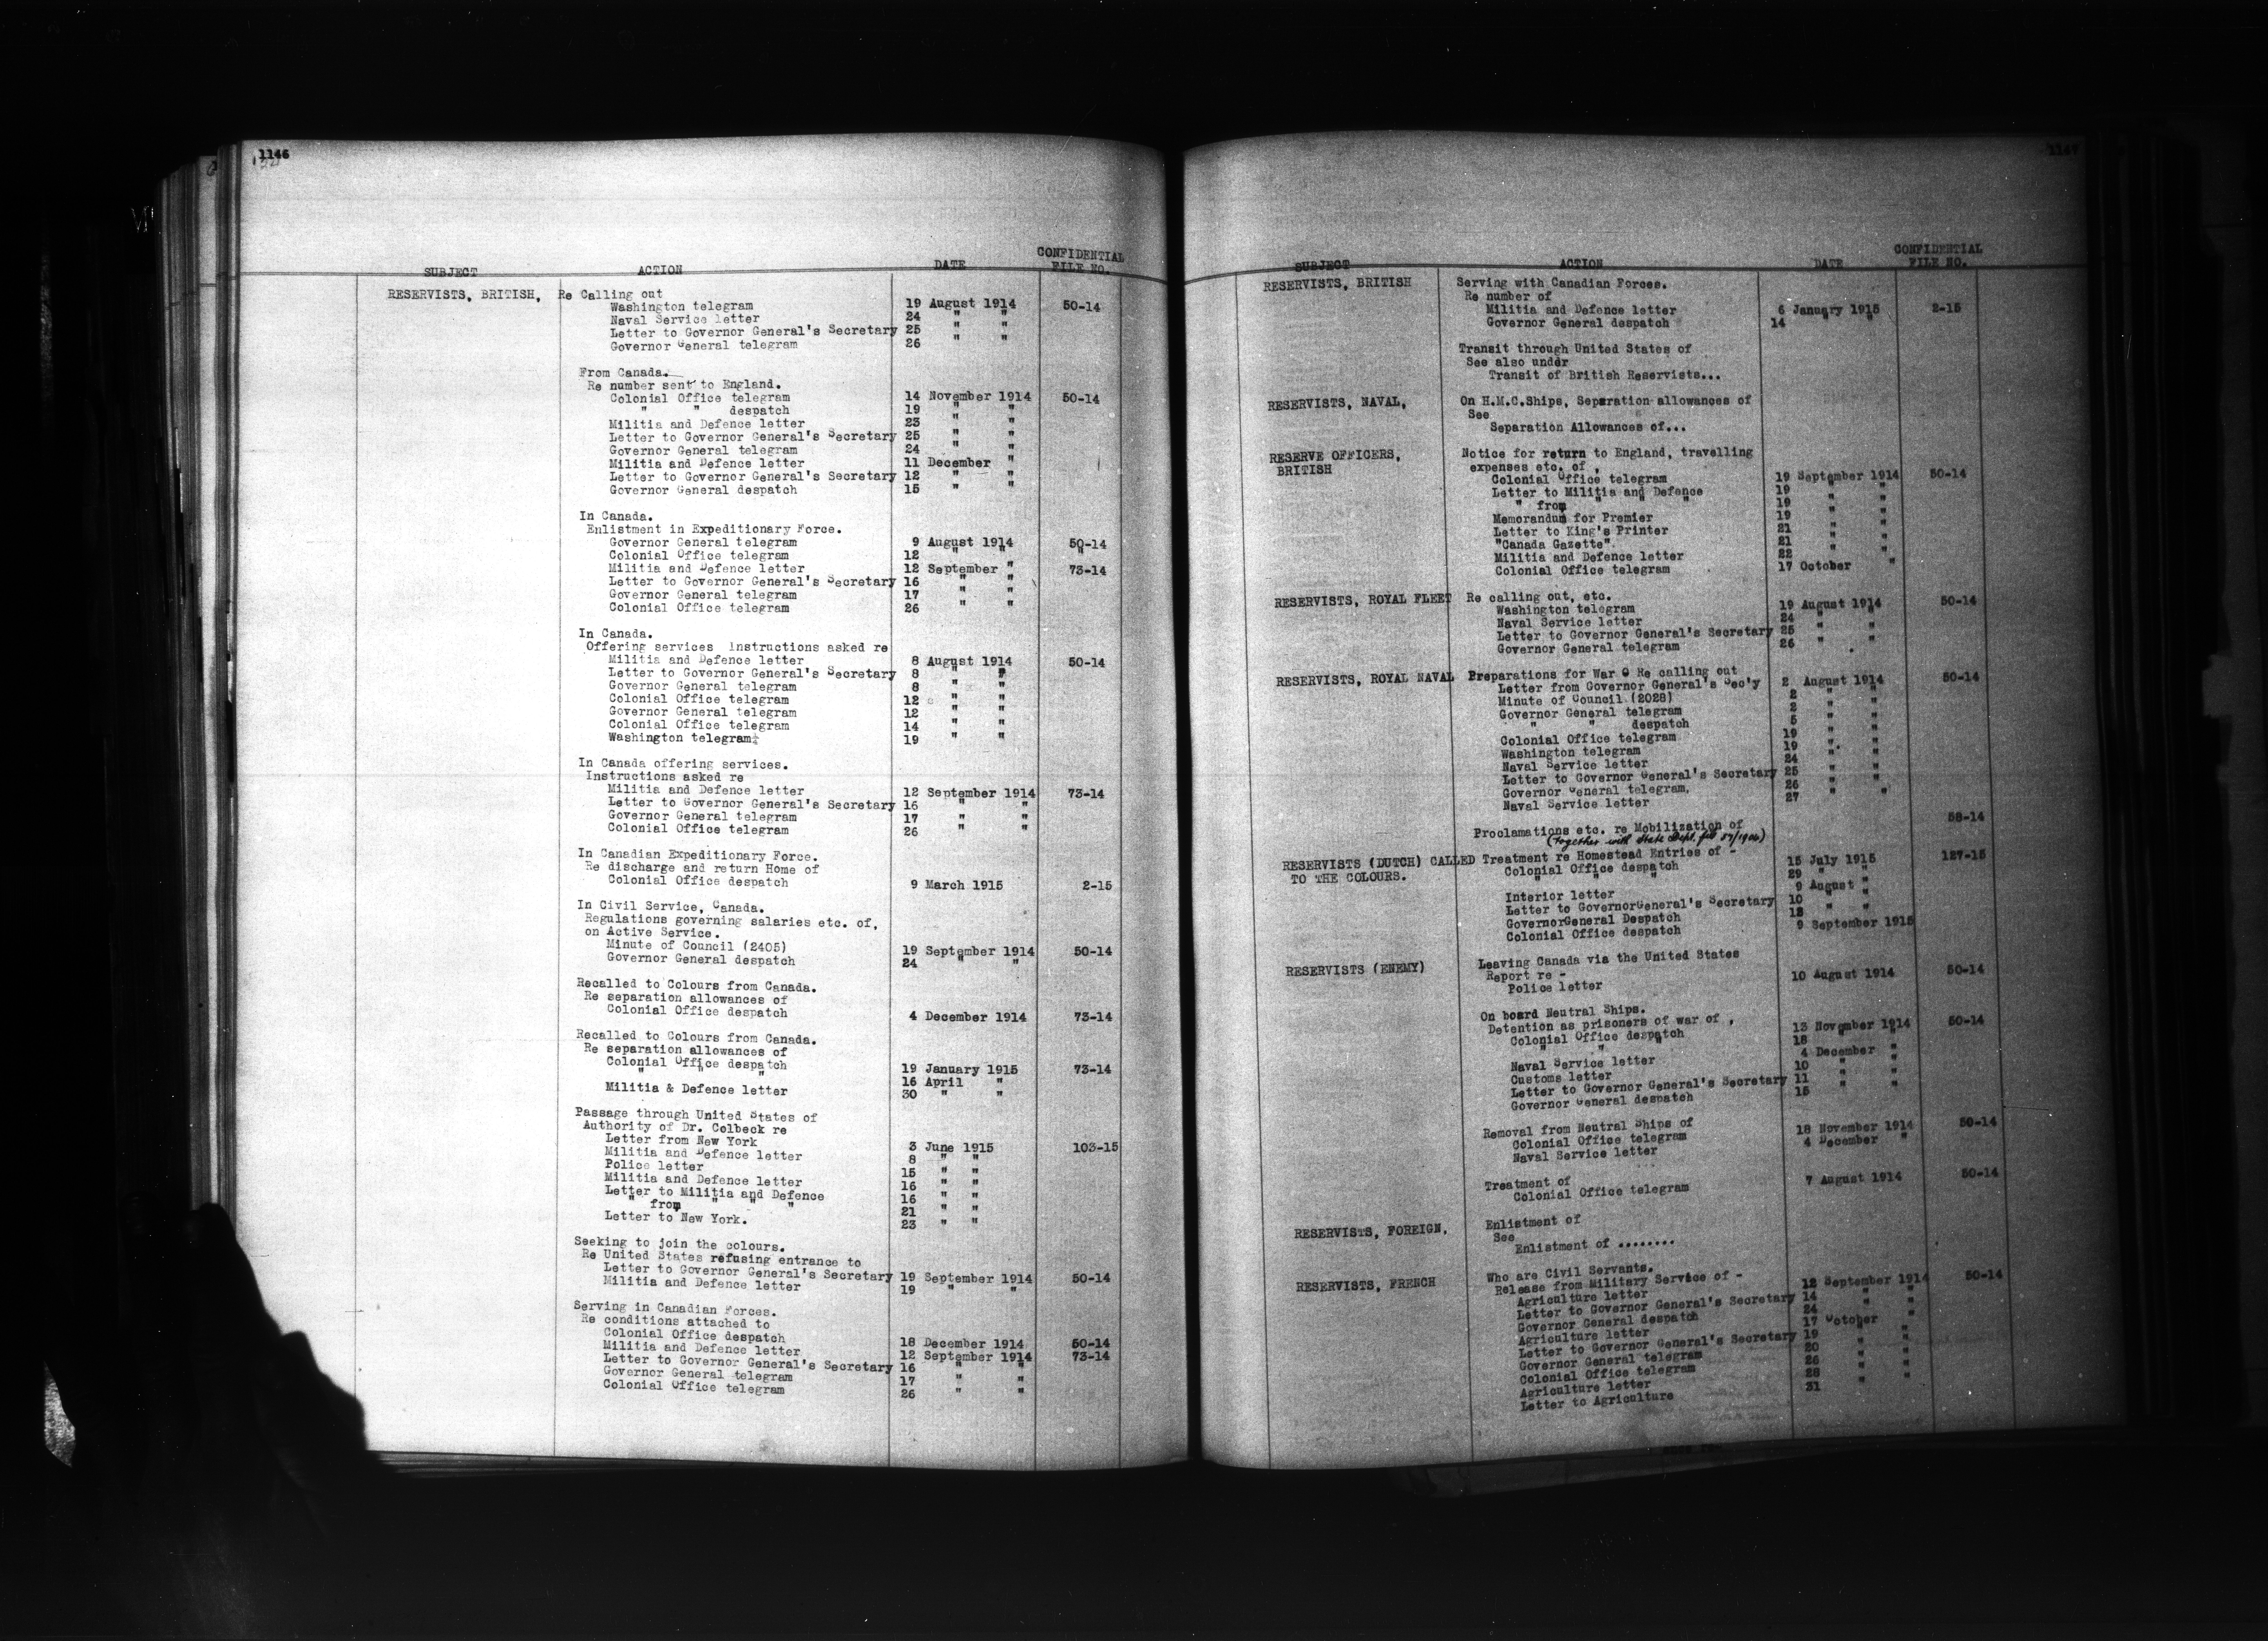 1146
SUBJECT ACTION DATE CONFIDENTIAL FILE NO.
RESERVISTS, BRITISH, Re Calling out
Washington telegram 19 August 1914 50-14
Naval Service letter 24 " "
Letter to Governor General's Secretary 25 " "
Governor General telegram 26 " "
From Canada.
Re number sent to England.
Colonial Office telegram 14 November 1914 50-14
" " despatch 19 " "
Militia and Defence letter 23 " "
Letter to Governor General's Secretary 25 " "
Governor General telegram 24 " "
Militia and Defence letter 11 December "
Letter to Governor General's Secretary 12 " "
Governor General despatch 15 " "
In Canada.
Enlistment in Expeditionary Force.
Governor General telegram 9 August 1914 50-14
Colonial Office telegram 12 " " "
Militia and Defence letter 12 September " 73-14
Letter to Governor General's Secretary 16 " "
Governor General telegram 17 " "
Colonial Office telegram 26 " "
In Canada.
Offering services Instructions asked re
Militia and Defence letter 8 August 1914 50-14
Letter to Governor General's Secretary 8 " "
Governor General telegram 8 " "
Colonial Office telegram 12 " "
Governor General telegram 12 " "
Colonial Office telegram 14 " "
Washington telegram 19 " "
In Canada offering services.
Instructions asked re
Militia and Defence letter 12 September 1914 73-14
Letter to Governor General's Secretary 16 " "
Governor General telegram 17 " "
Colonial Office telegram 26 " "
In Canadian Expeditionary Force.
Re discharge and return Home of
Colonial Office despatch 9 March 1915 2-15
In Civil Service, Canada.
Regulations governing salaries etc. of,
on Active Service.
Minute of Council (2405) 19 September 1914 50-14
Governor General despatch 24 " "
Recalled to Colours from Canada.
Re separation allowances of
Colonial Office despatch 4 December 1914 73-14
Recalled to Colours from Canada.
Re separation allowances of
Colonial Office despatch 19 January 1915 73-14
" " " 16 April "
Militia & Defence letter 30 " "
Passage through United States of
Authority of Dr. Colbeck re
Letter from New York 3 June 1915 103-15
Militia and Defence letter 8 " "
Police letter 15 " "
Militia and Defence letter 16 " "
Letter to Militia and Defence 16 " "
" from " " " 21 " "
Letter to New York. 23 " "
Seeking to join the colours.
Re United States refusing entrance to
Letter to Governor General's Secretary 19 September 1914 50-14
Militia and Defence letter 19 " "
Serving in Canadian Forces.
Re conditions attached to
Colonial Office despatch 18 December 1914 50-14
Militia and Defence letter 12 September 1914 73-14
Letter to Governor General's Secretary 16 " "
Governor General telegram 17 " "
Colonial Office telegram 26 " "
1147
SUBJECT ACTION DATE CONFIDENTIAL FILE NO.
RESERVISTS, BRITISH Serving with Canadian Forces.
Re number of
Militia and Defence letter 6 January 1915 2-15
Governor General despatch 14 " "
Transit through United States of
See also under
Transit of British Reservists...
RESERVISTS, NAVAL, On H.M.C.Ships, Separation allowances of
See
Separation Allowances of...
RESERVE OFFICERS, BRITISH Notice for return to England, travelling
expenses etc. of ,
Colonial Office telegram 19 September 1914 50-14
Letter to Militia and Defence 19 " "
" from " " " 19 " "
Memorandum for Premier 19 " "
Letter to King's Printer 21 " "
"Canada Gazette". 21 " "
Militia and Defence letter 22 " "
Colonial Office telegram 17 October "
RESERVISTS, ROYAL FLEET Re calling out, etc.
Washington telegram 19 August 1914 50-14
Naval Service letter 24 " "
Letter to Governor General's Secretary 25 " "
Governor General telegram 26 " "
RESERVISTS, ROYAL NAVAL Preparations for War Re calling out
Letter from Governor General's Sec'y 2 August 1914 50-14
Minute of Council (2028) 2 " "
Governor General telegram 2 " "
" " despatch 5 " "
Colonial Office telegram 19 " "
Washington telegram 19 " "
Naval Service letter 24 " "
Letter to Governor General's Secretary 25 " "
Governor General telegram. 26 " "
Naval Service letter 27 " "
Proclamations etc. re Mobilization of 58-14
(Together with State Dept. file 57/1906)
RESERVISTS (DUTCH) CALLED TO THE COLOURS. Treatment re Homestead Entries of -
Colonial Office despatch 15 July 1915 127-15
" " " 29 " "
Interior letter 9 August "
Letter to GovernorGeneral's Secretary 10 " "
GovernorGeneral Despatch 12 " "
Colonial Office despatch 9 September 1915
RESERVISTS (ENEMY) Leaving Canada via the United States
Report re -
Police letter 10 August 1914 50-14
On board Neutral Ships.
Detention as prisoners of war of ,
Colonial Office despatch 13 November 1914 50-14
" " " 18 " "
Naval Service letter 4 December "
Customs letter 10 " "
Letter to Governor General's Secretary 11 " "
Governor General despatch 15 " "
Removal from Neutral Ships of
Colonial Office telegram 18 November 1914 50-14
Naval Service letter 4 December "
Treatment of
Colonial Office telegram 7 August 1914 50-14
RESERVISTS, FOREIGN, Enlistment of
See
Enlistment of ........
RESERVISTS, FRENCH Who are Civil Servants.
Release from Military Service of -
Agriculture letter 12 September 1914 50-14
Letter to Governor General's Secretary 14 " "
Governor General despatch 24 " "
Agriculture letter 17 October "
Letter to Governor General's Secretary 19 " "
Governor General telegram 20 " "
Colonial Office telegram 26 " "
Agriculture letter 28 " "
Letter to Agriculture 31 " "